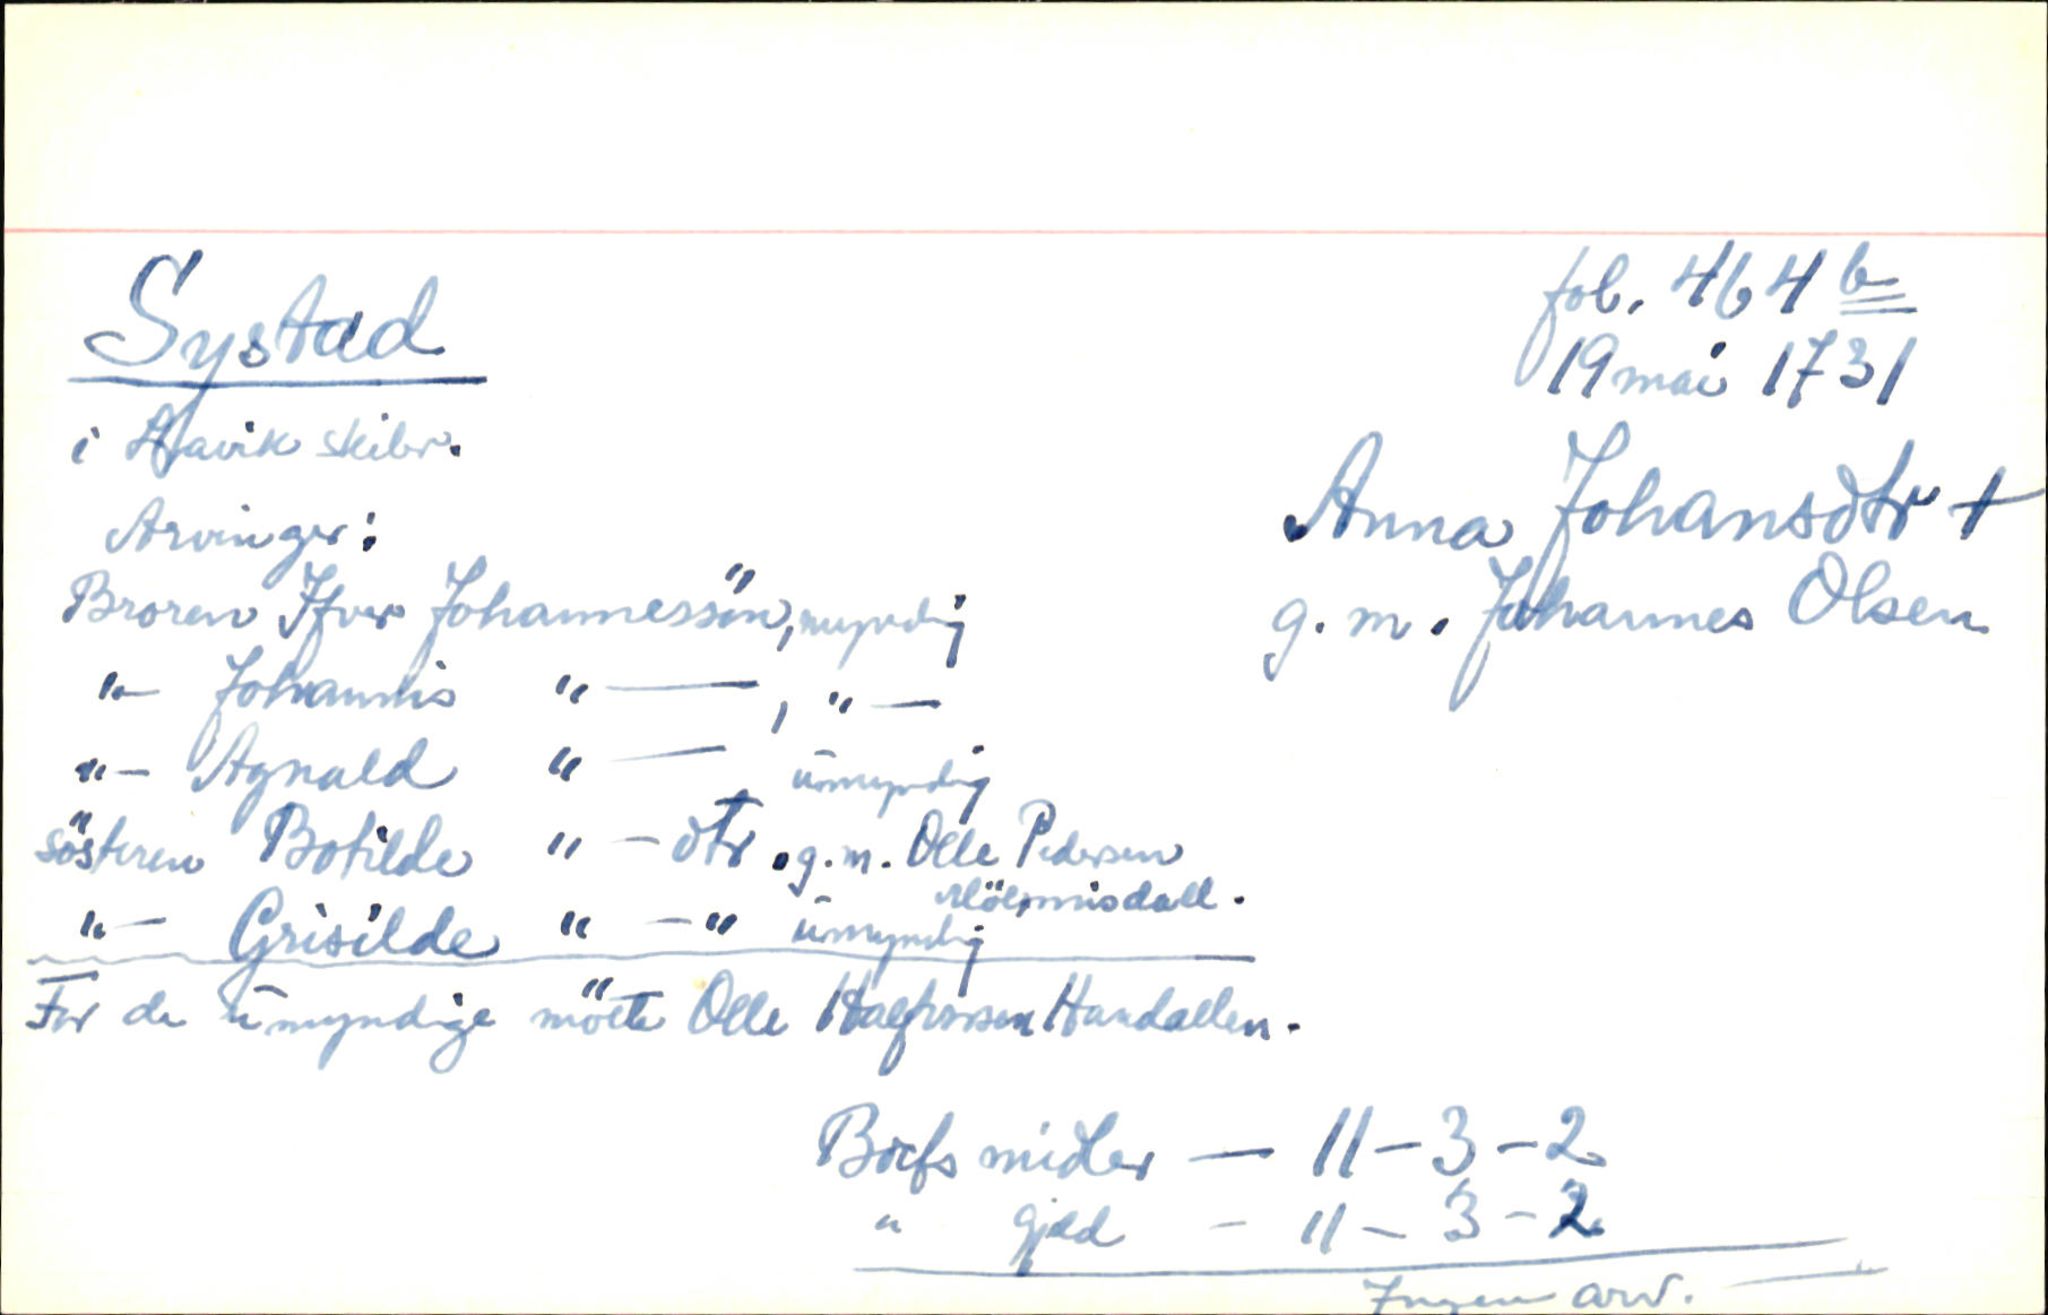 Systad
fol. 464 b
19 mai 1731
i Havik skibr.
Anna Johansdtr +
g. m. Johannes Olsen
Arvinger:
Broren Ifver Johannessön, myndig
"- Johannis "—, "—
"- Agnald "— umyndig
sösteren Botilde " - dtr. g. m. Olle Pedersen
"- Grisilde " - " umyndig
For de umyndige mötte Olle Halfvorsen Handallen.
Boefs midler — 11 - 3 - 2
" gjeld - 11 - 3 - 2
Ingen arv.